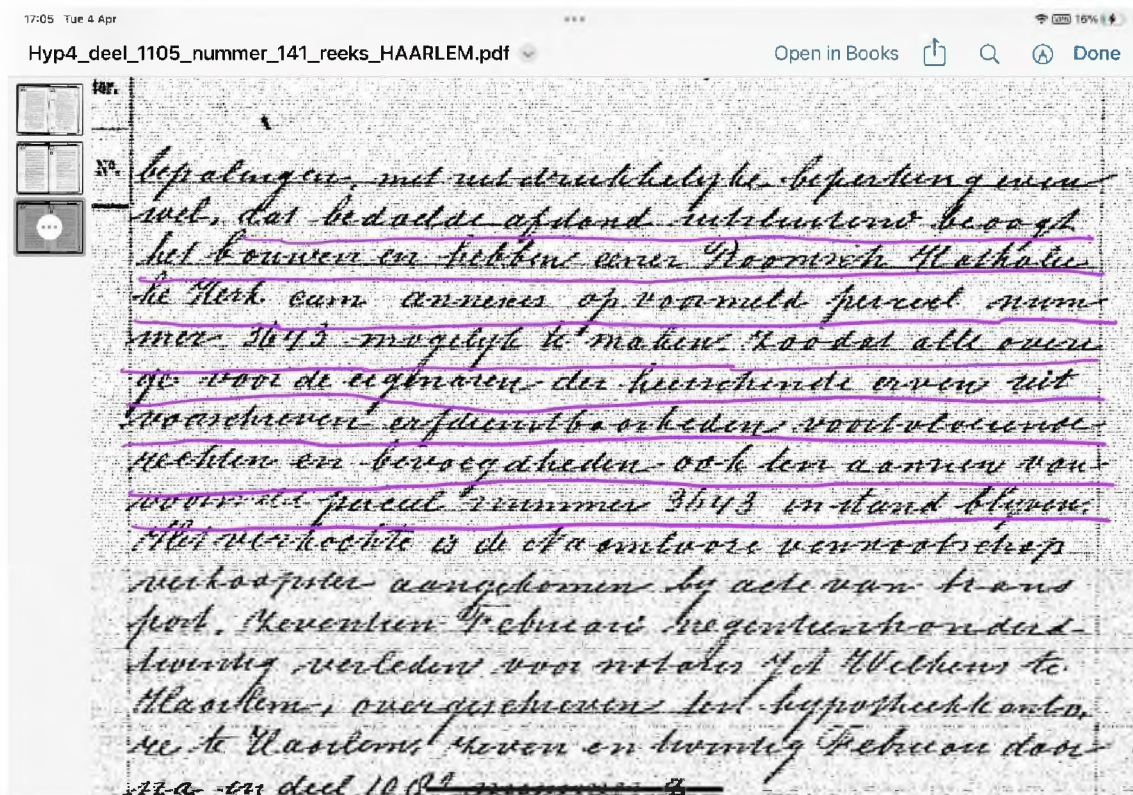 17:05 Tue 4 Apr
16%
Hyp4_deel_1105_nummer_141_reeks_HAARLEM.pdf
Open in Books
Done
No.
bepalingen, met uitdrukkelyke beperking even
wel, dat bedoelde afstand uitsluitend beoogt
het bouwen en hebben eener Roomsch Katholie
ke Kerk cum annexis op voormeld perceel num
mer 3643 mogelyk te maken. Zoodat alle overi
ge voor de eigenaren der heerschende erven uit
voorschreven erfdienstbaarheden voortvloeiende
rechten en bevoegdheden ook ten aanzien van
perceel nummer 3643 in stand blyven.
Het verkochte is de Naamlooze vennootschap
verkoopster aangekomen by acte van trans
port, zeventien Februari negentienhonderd
twintig verleden voor notaris Wilkens te
Haarlem, overgeschreven ten hypotheekkanto
re te Haarlem, zeven en twintig Februari daar
na in deel